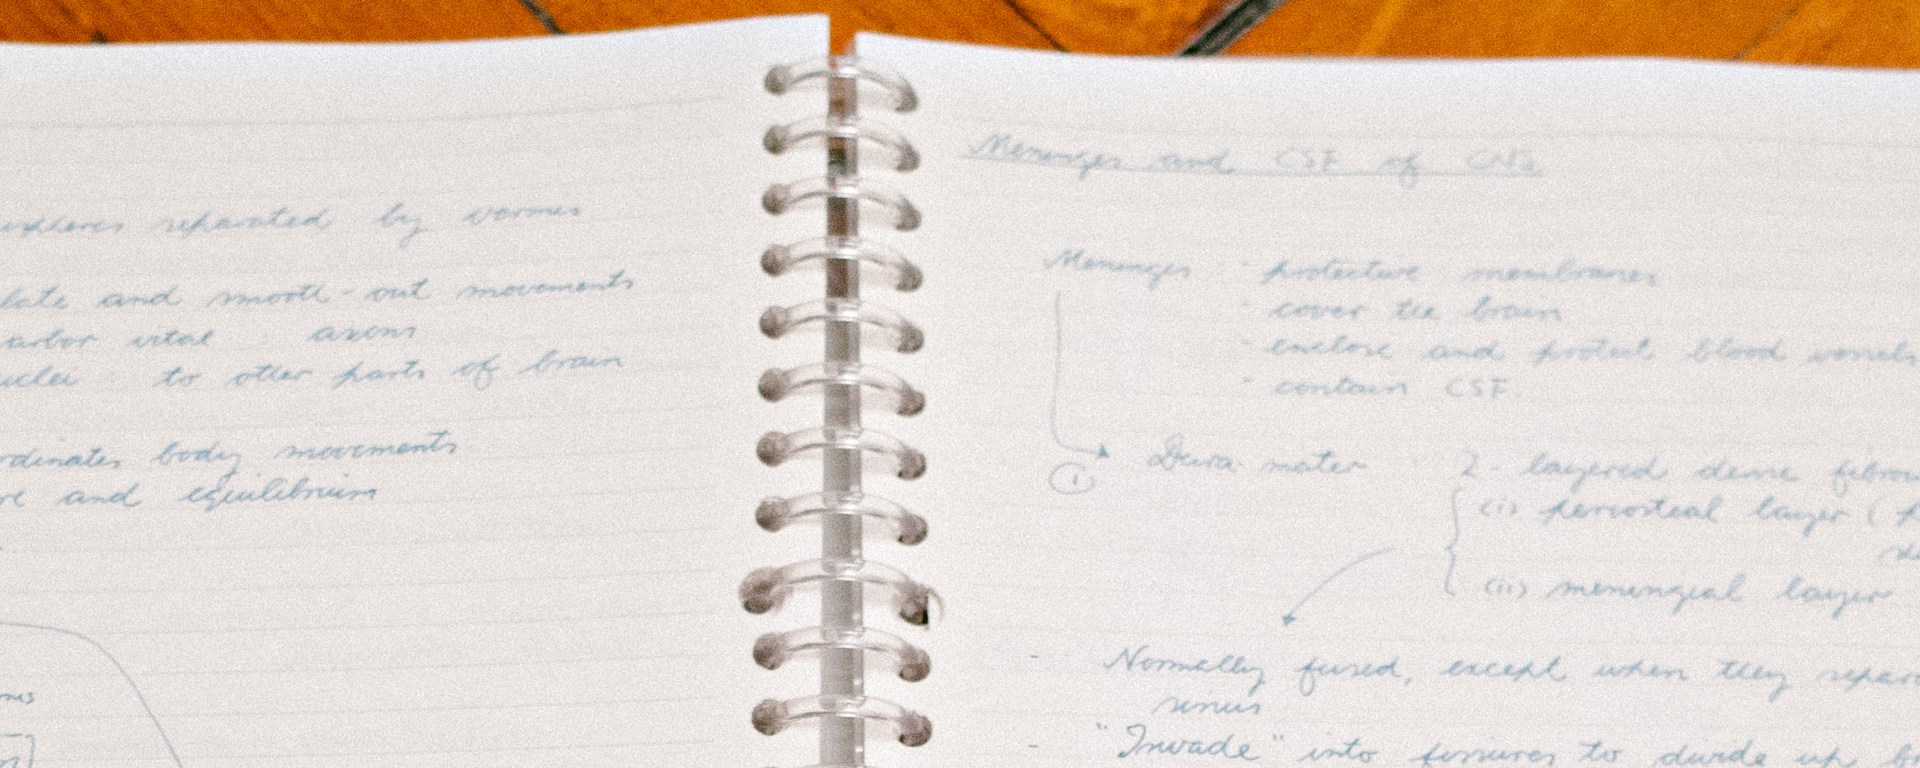 separated by vermis
late and smooth-out movements
arbor vitae : axons
to other parts of brain
body movements
and equilibrium
Meninges and CSF of CNS
Meninges - protective membranes
- cover the brain
- enclose and protect blood vessels
- contain CSF.
① Dura mater 2-layered dense
(i) periosteal layer (
(ii) meningeal layer
- Normally fused, except when they
sinus
- "Invade" into fissures to divide up